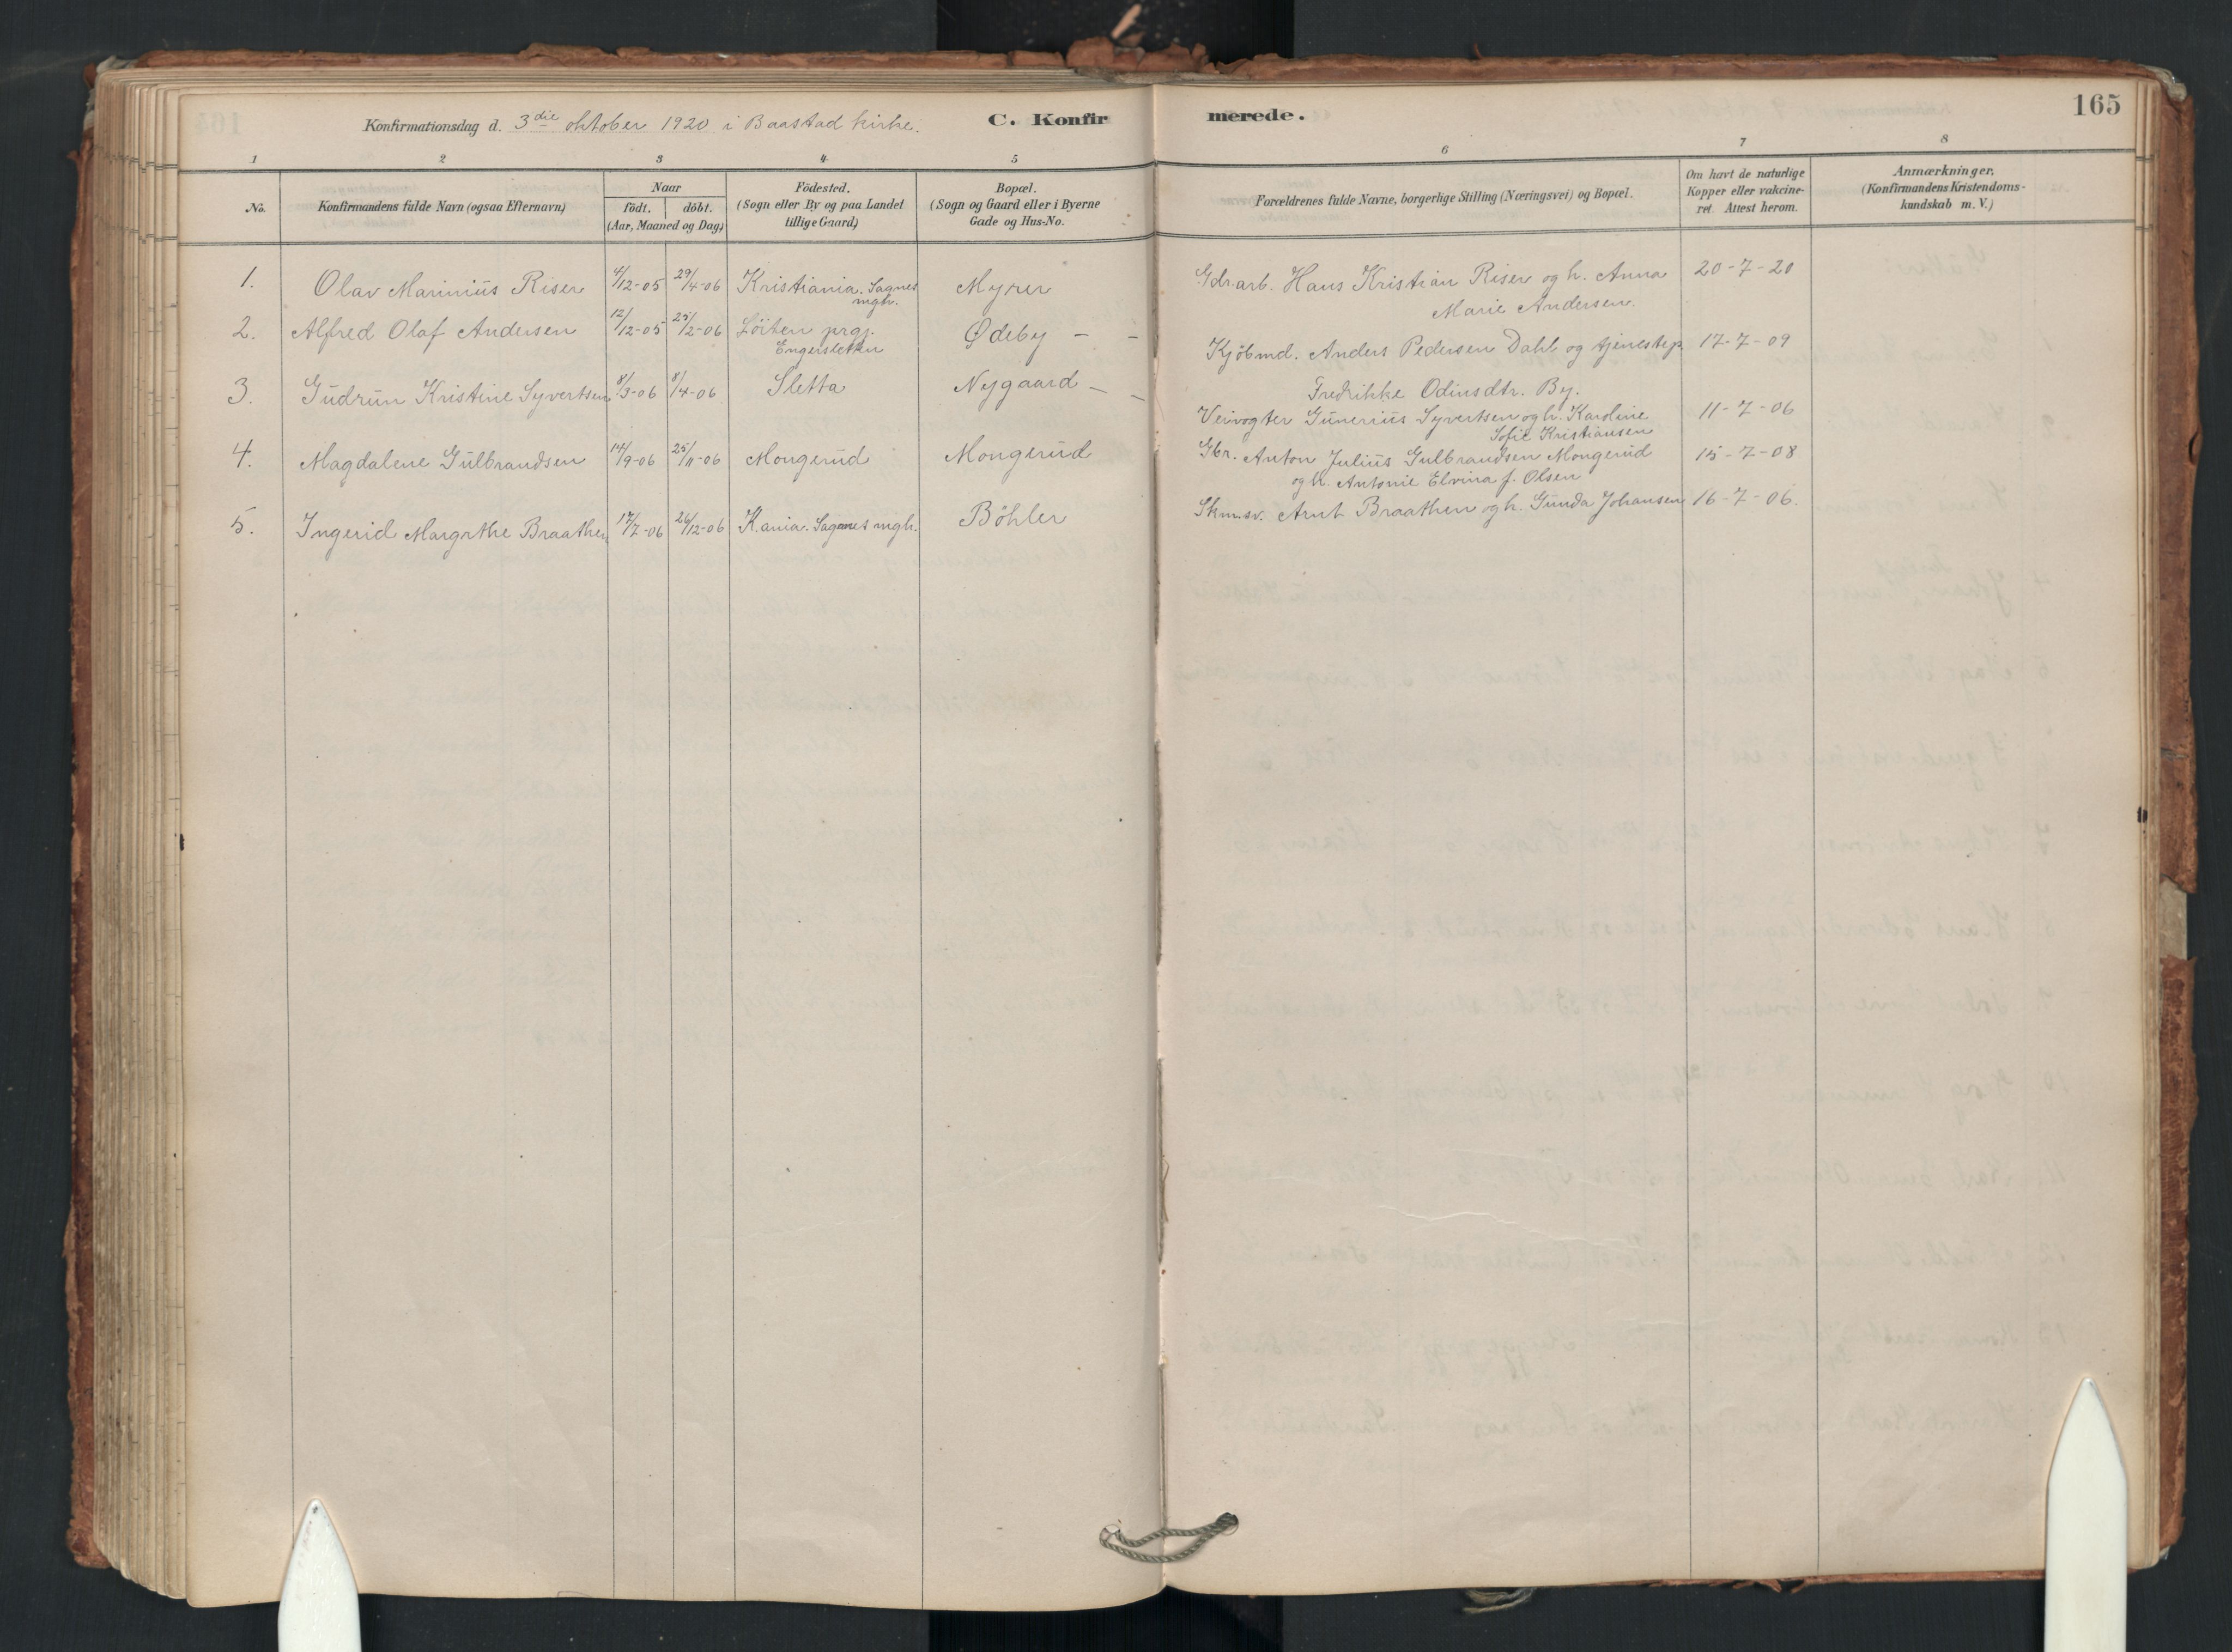 165
Konfirmationsdag d. 3die oktober 1920 i Baastad kirke.
C. Konfirmerede.
1 2 3 4 5 6 7 8
No.
Konfirmandens fulde Navn (ogsaa Efternavn)
Naar
födt. döbt.
(Aar, Maaned og Dag)
Födested.
(Sogn eller By og paa Landet
tillige Gaard)
Bopæl.
(Sogn og Gaard eller i Byerne
Gade og Hus-No.
Forældrenes fulde Navne, borgerlige Stilling (Næringsvei) og Bopæl.
Om havt de naturlige
Kopper eller vakcine-
ret. Attest herom.
Anmærkninger.
(Konfirmandens Kristendoms-
kundskab m. V.)
1. Olav Marinius Riser 4/12-05 29/4-06 Kristiania. Sagnes Myrer Gdr.arb. Hans Kristian Riser og h. Anna 20-7-20
mgh. Marie Andersen.
2. Alfred Olaf Andersen 12/12-05 25/2-06 Löiten prgj. Ødeby - - Kjöbmd. Anders Pedersen Dahl og tjenestep. 17-7-09
Engersletten Fredrikke Odinsdtr. By.
3. Gudrun Kristine Syvertsen 8/3-06 8/4-06 Sletta Nygaard - - Veivogter Gunerius Syvertsen og h. Karoline 11-7-06
Sofie Kristiansen
4. Magdalene Gulbrandsen 14/9-06 25/11-06 Mongerud Mongerud Gbr. Anton Julius Gulbrandsen Mongerud 15-7-08
og h. Antonie Elvina f. Olsen
5. Ingerid Margrthe Braathen 17/7-06 26/12-06 K.ania. Sagenes mgh. Böhler Skmsv. Arnt Braathen og h. Gunda Johansen 16-7-06.